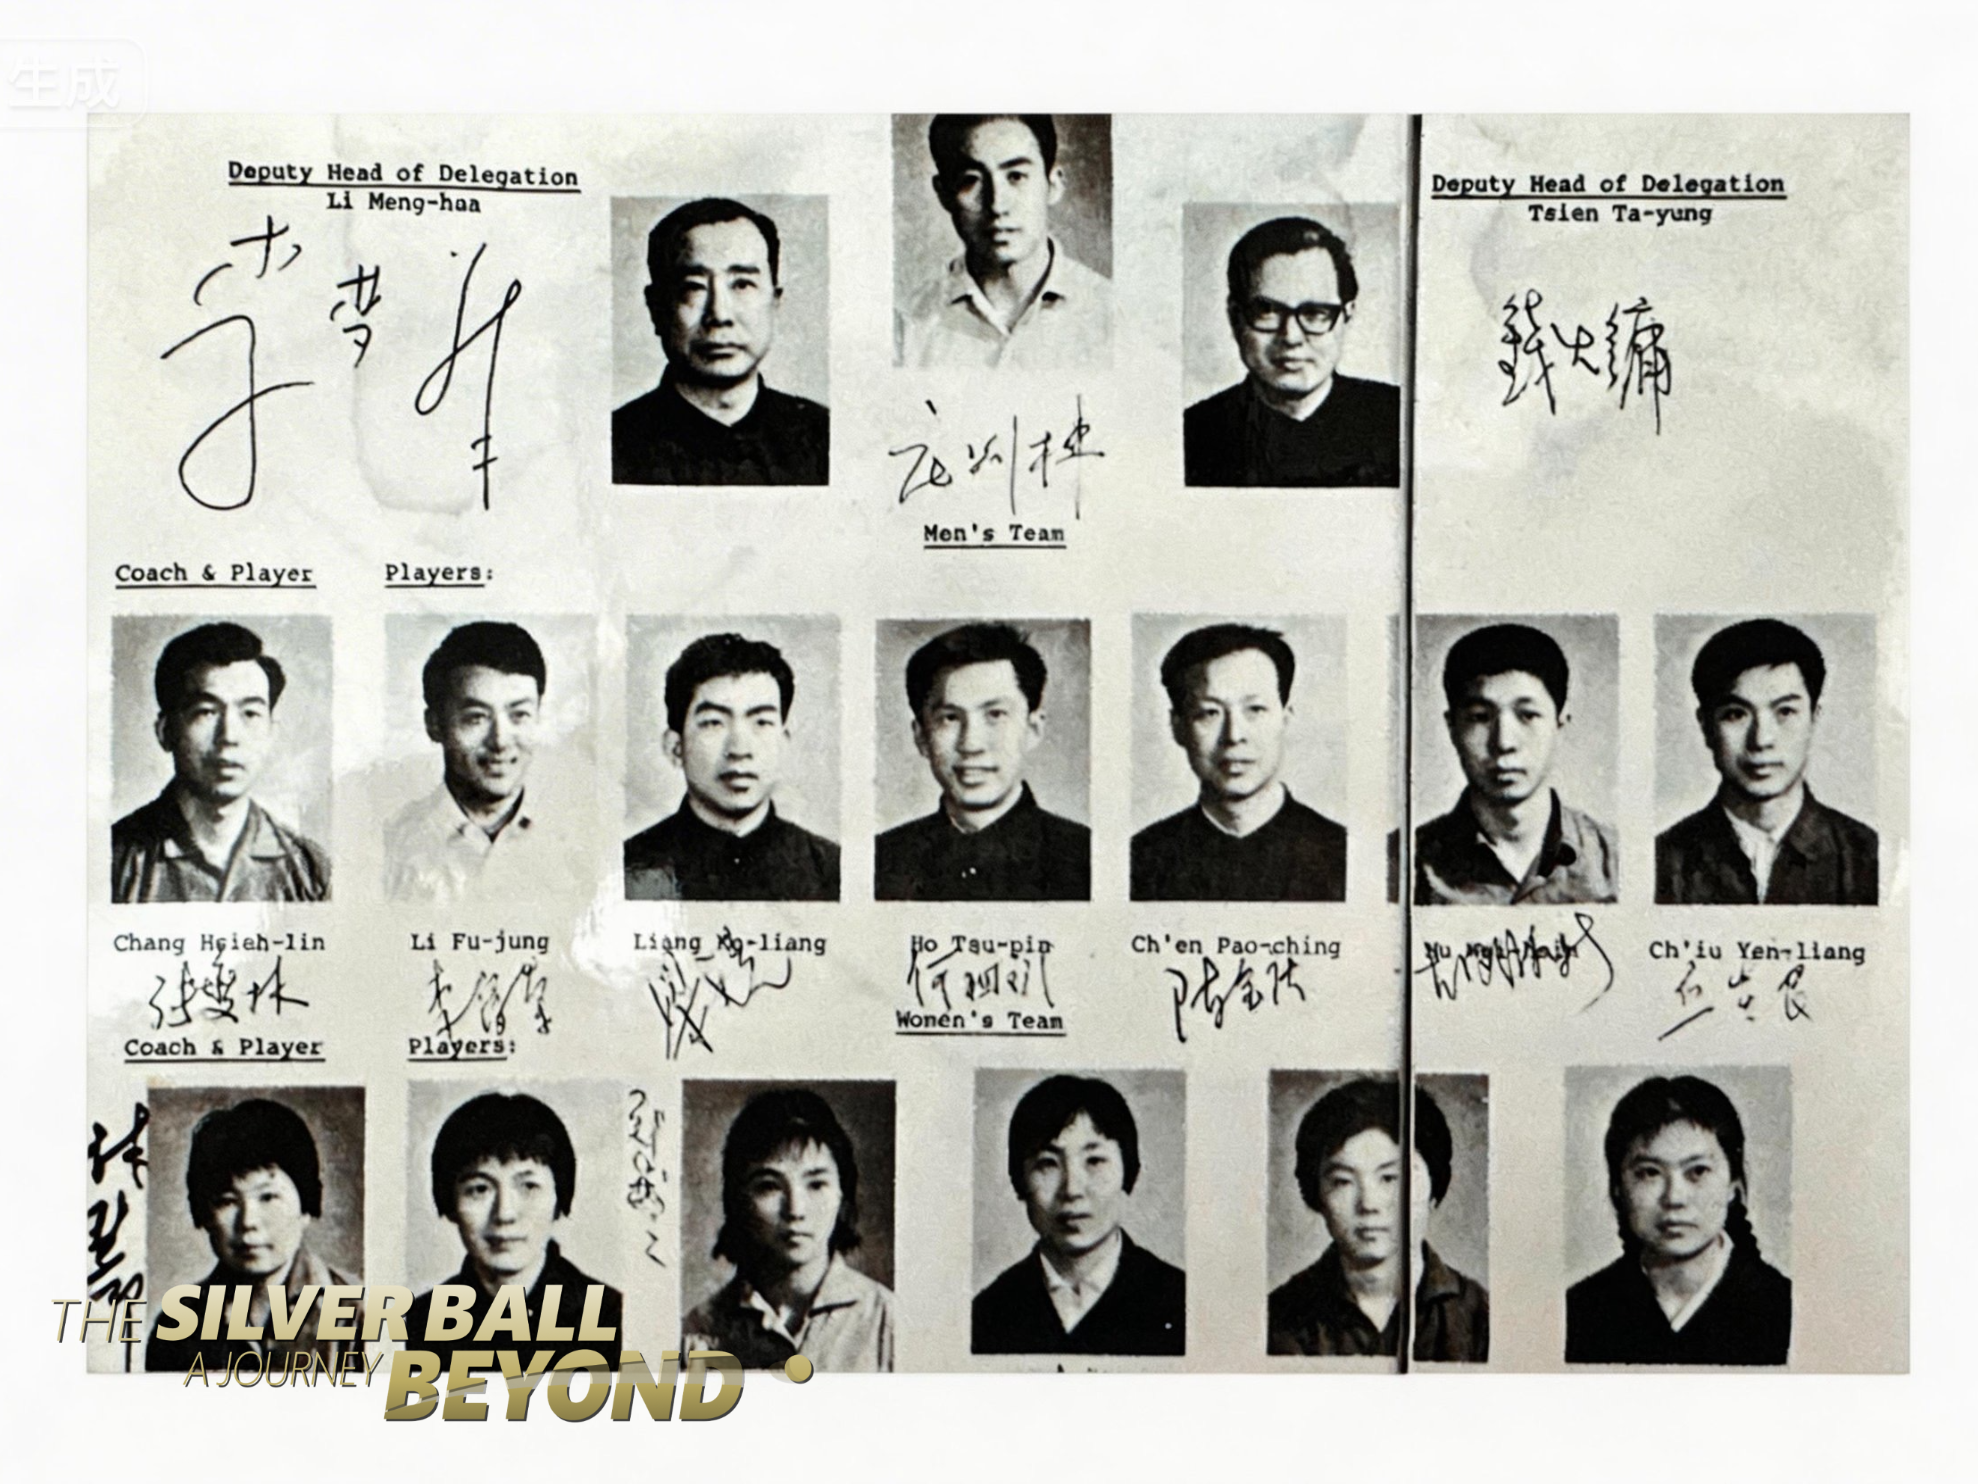 生成
Deputy Head of Delegation
Li Meng-hua
Deputy Head of Delegation
Tsien Ta-yung
李梦华
钱大镛
庄则栋
Men's Team
Coach & Player
Players:
Chang Hsieh-lin
Li Fu-jung
Liang Ko-liang
Ho Tsu-pin
Ch'en Pao-ching
Ch'iu Yen-liang
张燮林
李富荣
何祖斌
陈宝庆
Women's Team
Coach & Player
Players:
THE SILVER BALL
A JOURNEY BEYOND